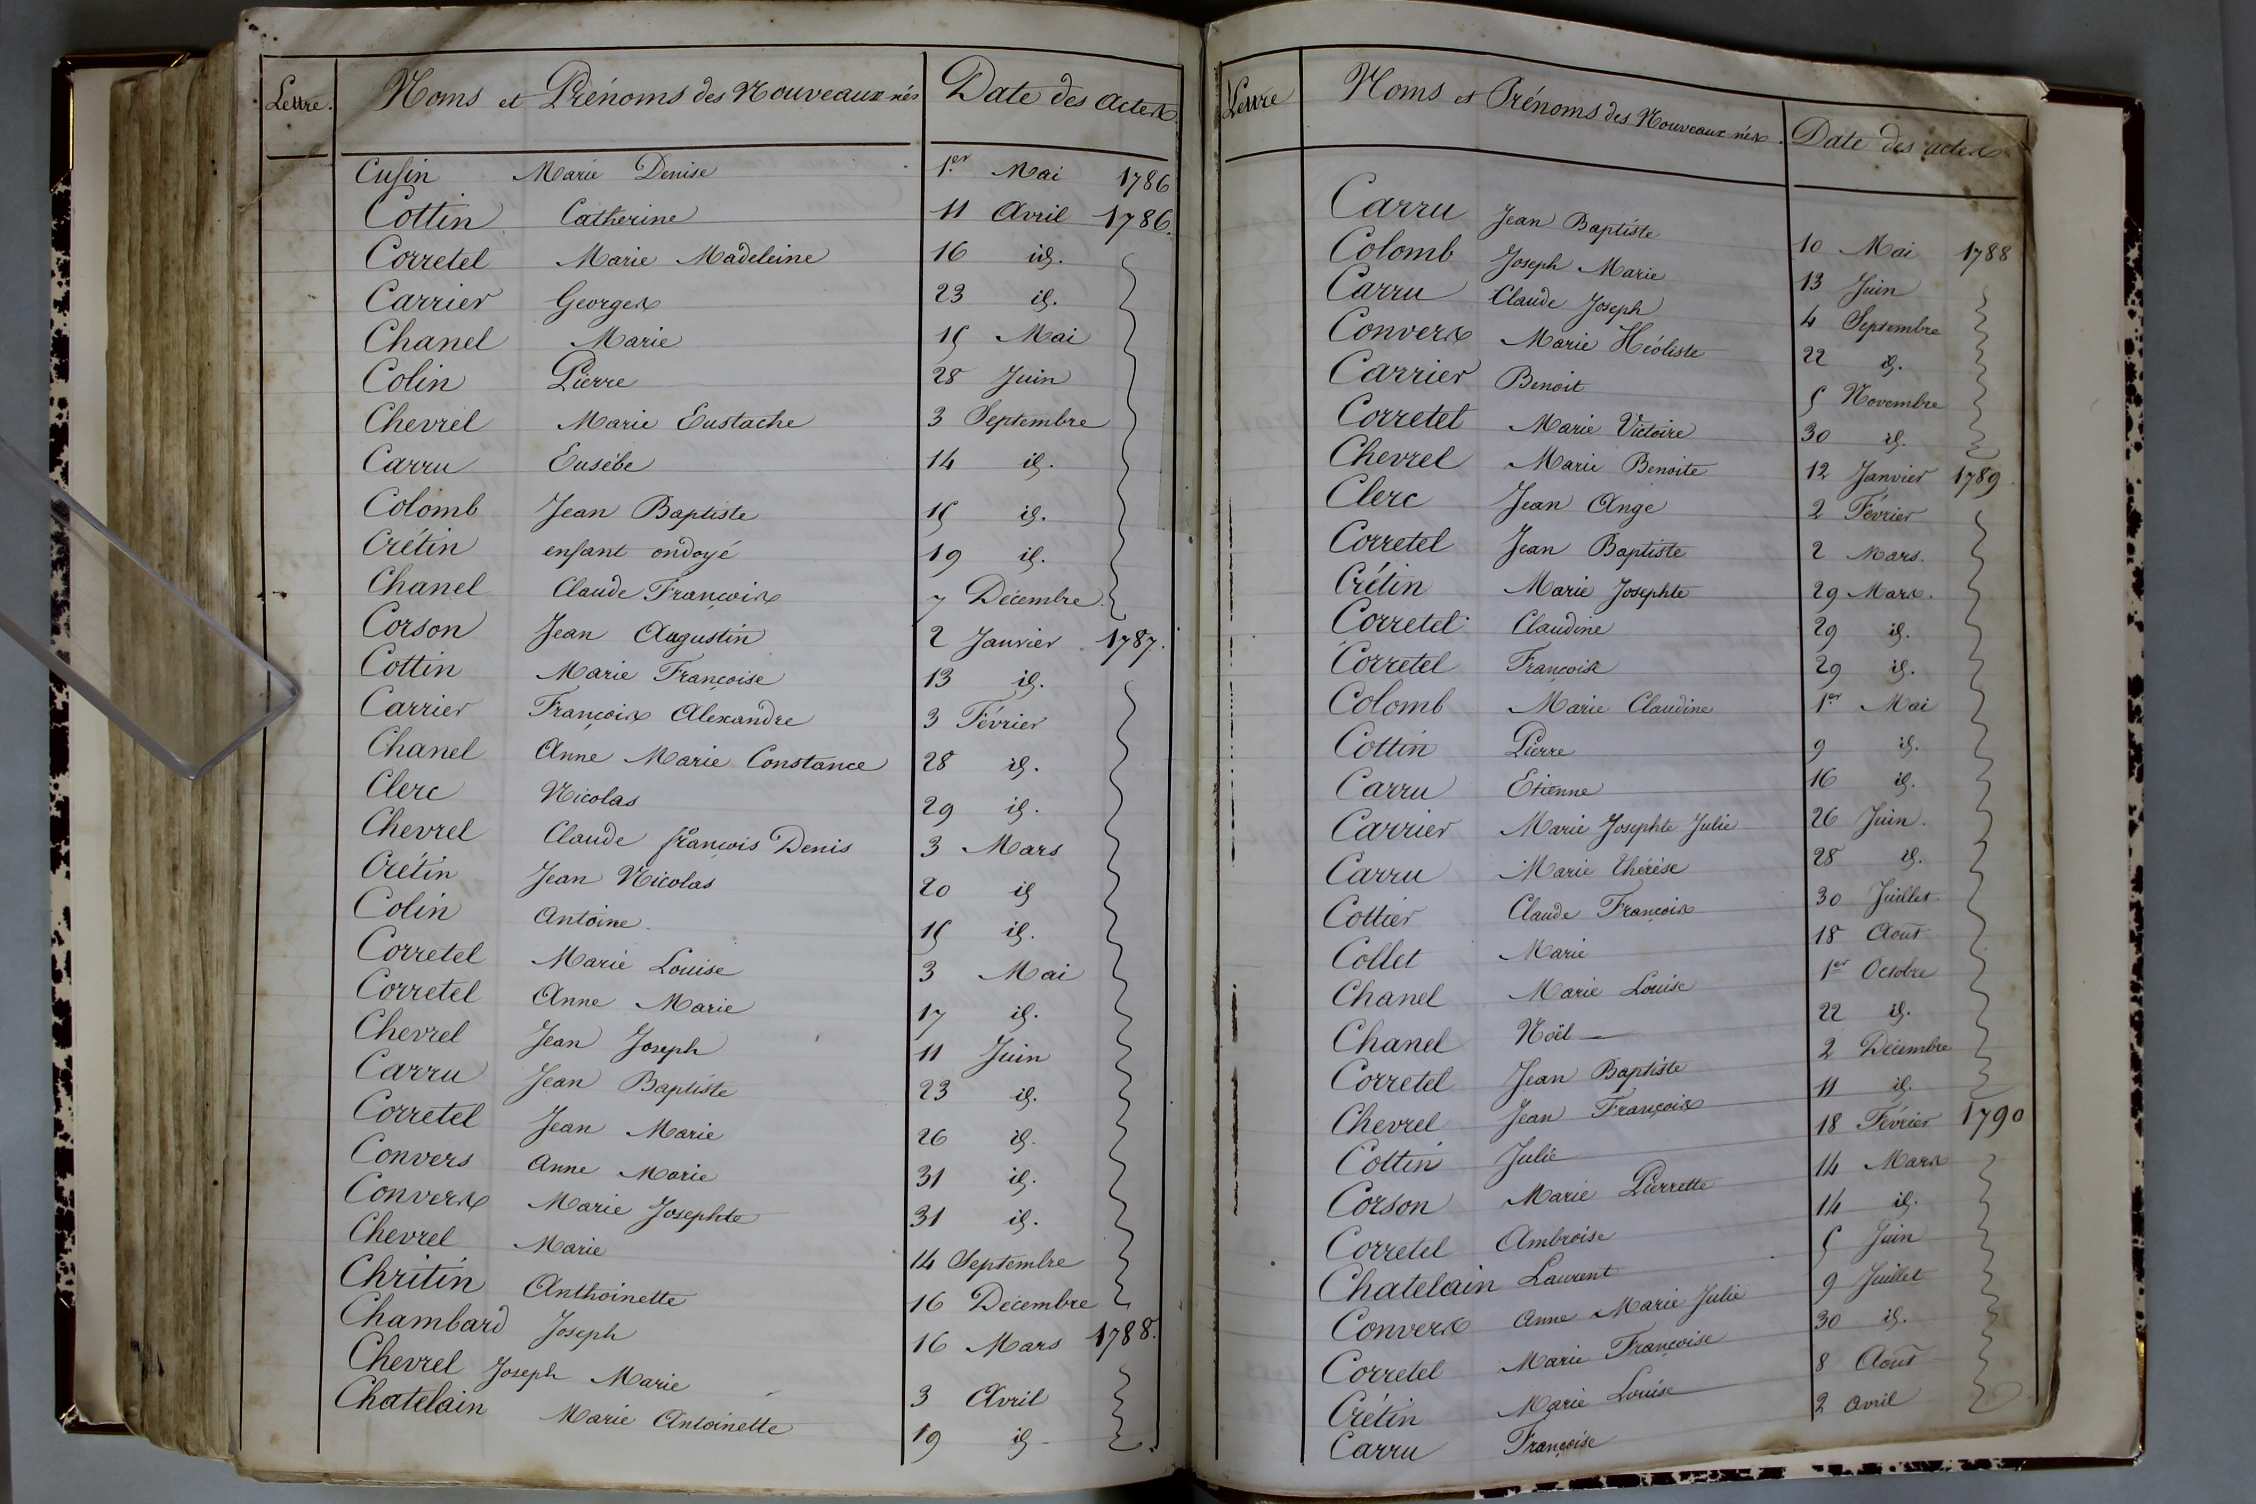 Lettre. Noms et Prénoms des Nouveaux nés Date des actes.
Cusin Marie Denise 1er Mai 1786
Cottin Catherine 11 Avril 1786.
Corretel Marie Madeleine 16 id.
Carrier Georges 23 id.
Chanel Marie 15 Mai
Colin Pierre 28 Juin
Chevrel Marie Eustache 3 Septembre
Carru Eusébe 14 id.
Colomb Jean Baptiste 15 id.
Crétin enfant ondoyé 19 id.
Chanel Claude François 7 Décembre
Corson Jean Augustin 2 Janvier 1787.
Cottin Marie Françoise 13 id.
Carrier François Alexandre 3 Février
Chanel Anne Marie Constance 28 id.
Clerc Nicolas 29 id.
Chevrel Claude françois Denis 3 Mars
Crétin Jean Nicolas 20 id
Colin Antoine 15 id.
Corretel Marie Louise 3 Mai
Corretel Anne Marie 17 id.
Chevrel Jean Joseph 11 Juin
Carru Jean Baptiste 23 id.
Corretel Jean Marie 26 id.
Convers Anne Marie 31 id.
Convers Marie Josephte 31 id.
Chevrel Marie 14 Septembre
Chritin Anthoinette 16 Décembre
Chambard Joseph 16 Mars 1788.
Chevrel Joseph Marie 3 Avril
Chatelain Marie Antoinette 19 id
Lettre Noms et Prénoms des Nouveaux nés. Date des actes
Carru Jean Baptiste 10 Mai 1788
Colomb Joseph Marie 13 Juin
Carru Claude Joseph 4 Septembre
Convers Marie 22 id.
Carrier Benoit 5 Novembre
Corretel Marie Victoire 30 id.
Chevrel Marie Benoite 12 Janvier 1789
Clerc Jean Ange 2 Février
Corretel Jean Baptiste 2 Mars.
Crétin Marie Josephte 29 Mars.
Corretel Claudine 29 id.
Corretel François 29 id.
Colomb Marie Claudine 1er Mai
Cottin Pierre 9 id.
Carru Etienne 16 id.
Carrier Marie Josephte Julie 26 Juin.
Carru Marie Thérèse 28 id.
Cottier Claude François 30 Juillet
Collet Marie 18 Aout
Chanel Marie Louise 1er Octobre
Chanel Noël 22 id.
Corretel Jean Baptiste 2 Décembre
Chevrel Jean François 11 id.
Cottin Julie 18 Février 1790
Corson Marie Pierrette 14 Mars
Corretel Ambroise 14 id.
Chatelain Laurent 5 Juin
Convers Anne Marie Julie 9 Juillet
Corretel Marie Françoise 30 id.
Crétin Marie Louise 8 Aout
Carru Françoise 2 avril